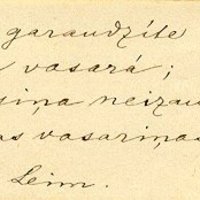 garaudzíte
vasará;
siņa neizau
as vasariņas
Leim.